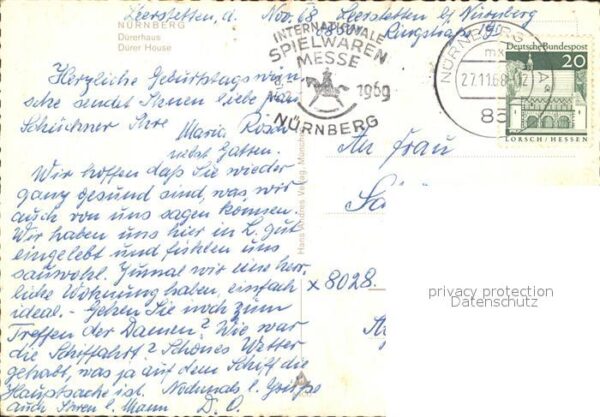 NÜRNBERG
Dürerhaus
Dürer House
Leerstetten, d. Nov. 68
Leerstetten b/ Nürnberg
8501
Ringstraße
INTERNATIONALE
SPIELWAREN
MESSE
1969
NÜRNBERG
NÜRNBERG
mx
27.11.68-12
85
Deutsche Bundespost
20
LORSCH/HESSEN
Herzliche Geburtstagswün-
sche sendet Ihnen liebe Frau
Schüchner Ihre Maria
nebst Gatten.
Wir hoffen daß Sie wieder
ganz gesund sind, was wir
auch von uns sagen können.
Wir haben uns hier in L. gut
eingelebt und fühlen uns
sauwohl. Zumal wir eine herr-
liche Wohnung haben, einfach
ideal. - Gehen Sie noch zum
Treffen der Damen? Wie war
die Schiffahrt? Schönes Wetter
gehabt, was ja auf dem Schiff die
Hauptsache ist. Nochmals l. Grüße
auch Ihren l. Mann D. O.
Hans Andres Verlag, München
An Frau
x 8028
privacy protection
Datenschutz